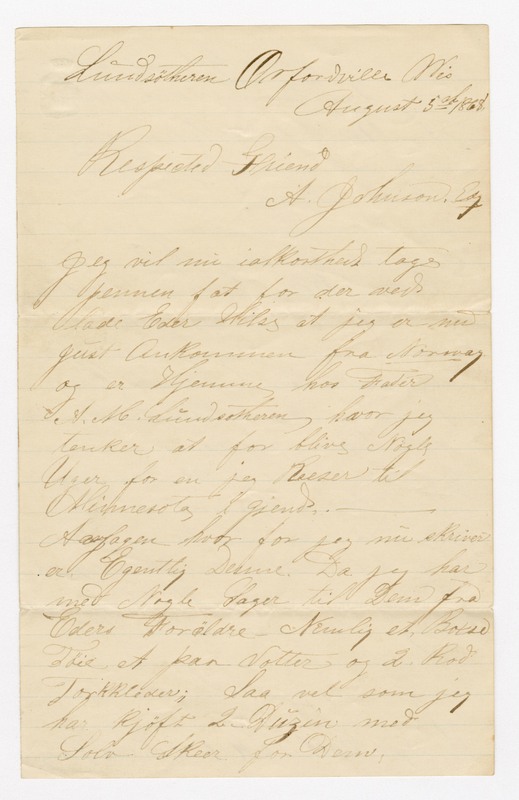 Lundsætheren Orfordville Wis
August 5th 1868
Respected Friend
A. Johnson, Esq
Jeg vil nu i al korthed tage
pennen fat for der ved
lade Eder Vide at jeg er nu
just Ankommen fra Norway
og er Hjemme hos Fater
A. M. Lundsætheren, hvor jeg
tenker at for blive Nogle
Uger for en jeg Reiser til
Minnesota Igjend.
Aarsagen hvor for jeg nu skriver
er Egentlig Denne. Da jeg har
med Nogle Sager til Dem fra
Eders Foraldre Nemlig et
Töie et paar Votter og 2 Rod
Törkklæder; Saa vel som jeg
har kjöft 2 Duzin med
Sölv Skeer for Dem,